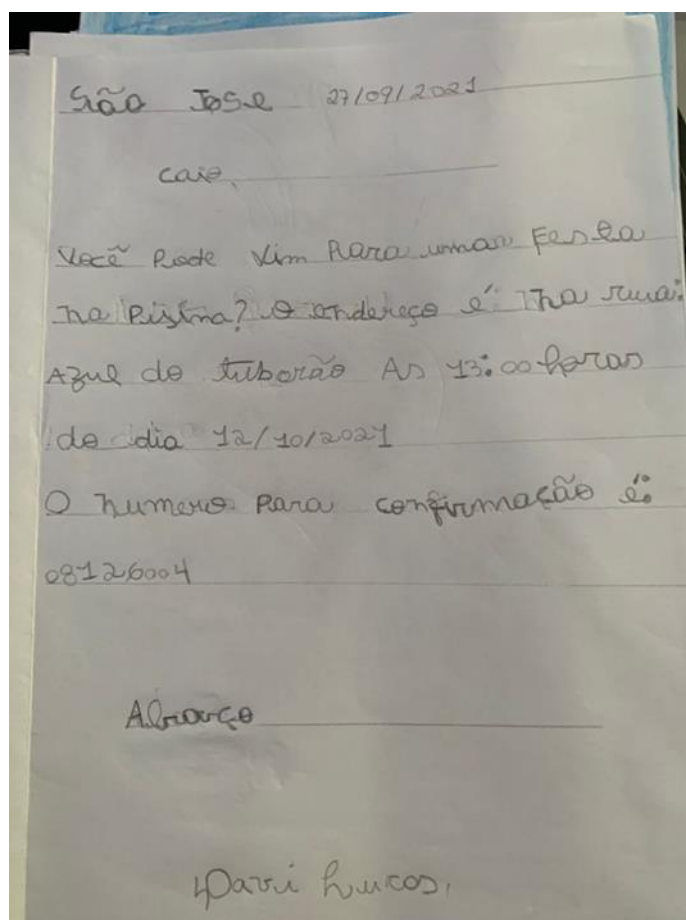 São Jose 27/09/2021
Caio,
Você Pode vim Para uma Festa
na Pisina? O endereço é: na rua:
Azul do tubarão As 13:00 horas
do dia 12/10/2021
O numero Para confirmação é:
08126004
Abraço
Davi Lucas,